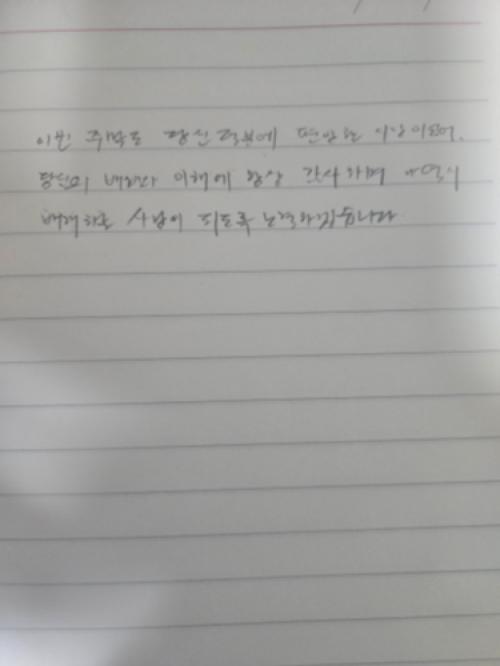 이번 주말도 당신 덕분에 편안한 시간이었어.
당신의 배려와 이해에 항상 감사하며 나 역시
배려하는 사람이 되도록 노력하겠습니다